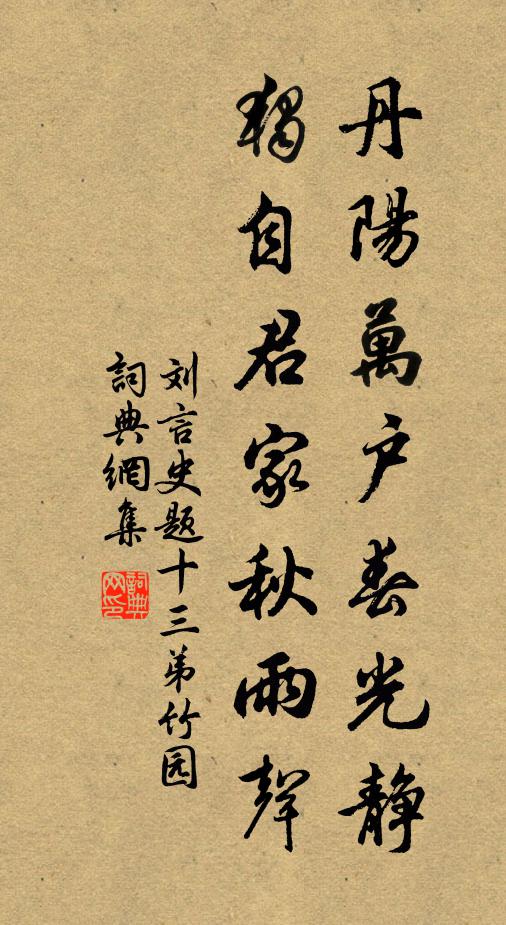 丹陽萬户春光静
獨自君家秋雨聲
刘言史题十三弟竹园
詞典網集
詞典网印